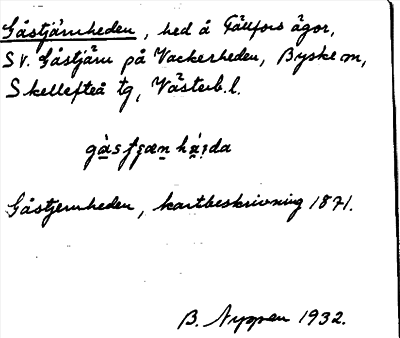 Gåstjärnheden, hed å Fällfors ägor,
SV. Gåstjärn på Vackerheden, Byske sn,
Skellefteå tg, Västerb. l.
Gåstjernheden, kartbeskrivning 1871.
B. Nyman 1932.